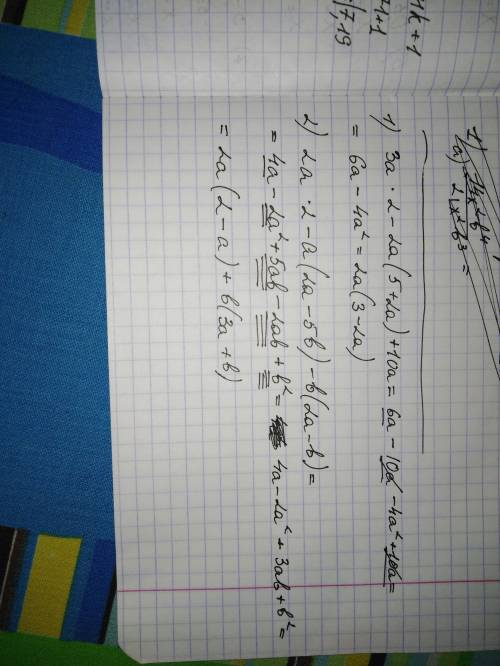 4k+1
4+1
17,19
1) 3a · 2 - 2a (5+2a) + 10a = 6a - 10a - 4a² + 10a =
= 6a - 4a² = 2a (3 - 2a)
2) 2a · 2 - a (2a - 5b) - b (2a - b) =
= 4a - 2a² + 5ab - 2ab + b² = 4a - 2a² + 3ab + b² =
= 2a (2 - a) + b (3a + b)